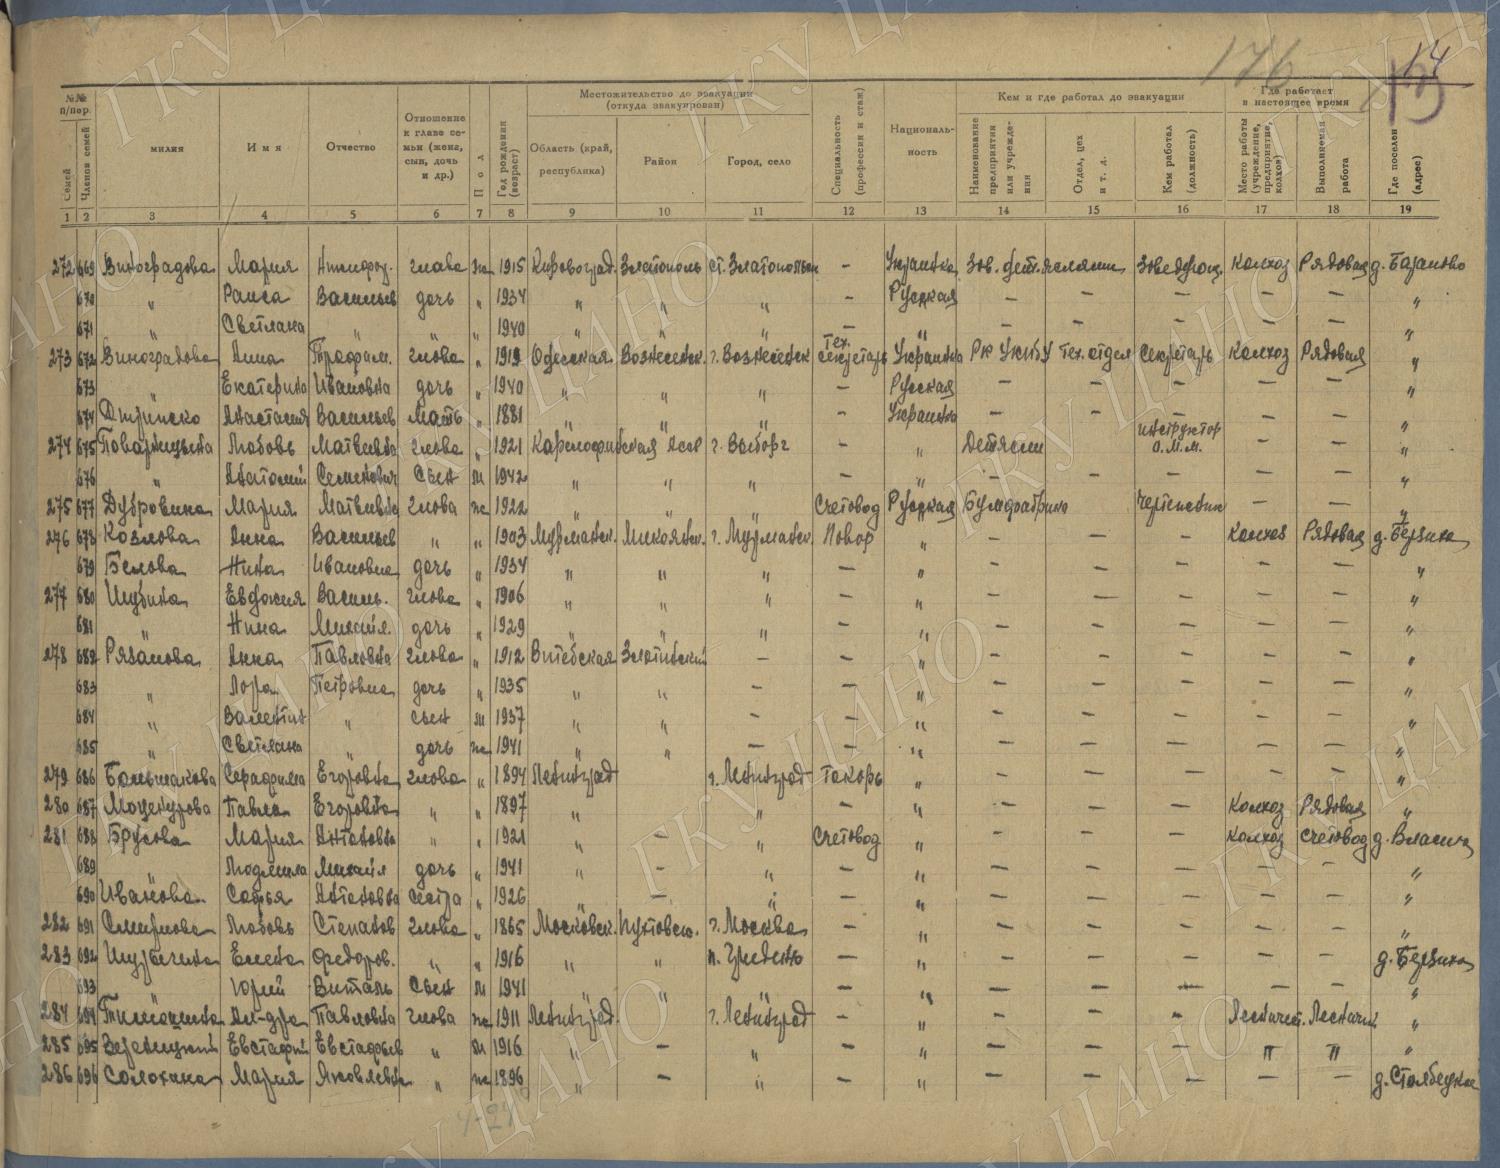 176
14
13
№№ п/пор.
Семей
Членов семей
милия
Имя
Отчество
Отношение к главе семьи (жена, сын, дочь и др.)
Пол
Год рождения (возраст)
Местожительство до эвакуации (откуда эвакуирован)
Область (край, республика)
Район
Город, село
Специальность (профессия и стаж)
Национальность
Кем и где работал до эвакуации
Наименование предприятия или учреждения
Отдел, цех и т. д.
Кем работал (должность)
Где работает в настоящее время
Место работы (учреждение, предприятие, колхоз)
Выполняемая работа
Где поселен (адрес)
1 2 3 4 5 6 7 8 9 10 11 12 13 14 15 16 17 18 19
272 669 Виноградова Мария глава ж 1915 Кировоград. Златополь ст. Златополь - Украинка Зав. дет. яслями Колхоз Рядовая д. Баганово
670 " Раиса Васильев дочь " 1934 " " " - Русская - - - - - "
671 " Светлана " " " 1940 " " " - " - - - - - "
273 672 Виноградова Анна Трофим. глава " 1919 Одесская Вознесенск. г. Вознесенск Тех. секретарь Украинка Тех. отдел Секретарь Колхоз Рядовая "
673 " Екатерина Ивановна дочь " 1940 " " " - Русская - - - - - "
674 Анастасия Васильев мать " 1881 " " " - Украинка - - - - - "
274 675 Любовь Матвеевна глава " 1921 Карелофинская АССР г. Выборг - " Детясли инструктор О.М.М. - - "
676 " Анатолий Семенович сын м 1942 " " " - " - - - - - "
275 677 Дубровина Мария Матвеевна глава ж 1922 " " " Счетовод Русская Бумфабрика - - "
276 678 Козлова Анна Васильев " " 1903 Мурманск. г. Мурманск Повар " - - - Колхоз Рядовая д. Березина
679 Белова Нина Ивановна дочь " 1934 " " " - " - - - - - "
277 680 Шубина Евдокия Василь. глава " 1906 " " " - " - - - - - "
681 " Нина Михайл. дочь " 1929 " " " - " - - - - - "
278 682 Рязанова Анна Павловна глава " 1912 Витебская - - " - - - - - "
683 " Лора Петровна дочь " 1935 " " - - " - - - - - "
684 " Валентин " сын м 1937 " " - - " - - - - - "
685 " Светлана " дочь ж 1941 " " - - " - - - - - "
279 686 Большакова Серафима Егоровна глава " 1894 Ленинград г. Ленинград Токарь " - - - - - "
280 687 Павла Егоровна " " 1897 " " - " - - - Колхоз Рядовая "
281 688 Брусова Мария Антоновна " " 1921 " - " Счетовод " - - - Колхоз Счетовод д. Власиха
689 " Людмила Михайл дочь " 1941 " - " - " - - - - - "
690 Иванова Софья Антоновна сестра " 1926 " - " - " - - - - - "
282 691 Смирнова Любовь Степанов глава " 1865 Московск. г. Москва - " - - - - - "
283 692 Елена Федоров. " " 1916 " " - " - - - - - д. Березина
693 " Юрий Виталь сын м 1941 " " " - " - - - - - "
284 694 Тимошкина Ал-дра Павловна глава ж 1911 Ленинград. г. Ленинград - " - - - Лесничест. Лесничий "
285 695 Евстафий Евстафьев " м 1916 " - " - " - - - " " "
286 696 Солохина Мария Яковлевна " ж 1896 " - " - " - - - - - д. Столбецкое
4-24